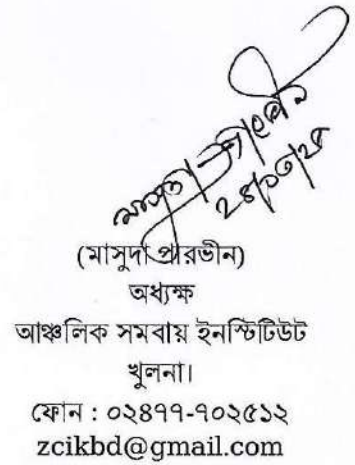 মাসুদা পারভীন
(মাসুদা পারভীন)
অধ্যক্ষ
আঞ্চলিক সমবায় ইনস্টিটিউট
খুলনা।
ফোন : ০২৪৭৭-৭০২৫১২
zcikbd@gmail.com